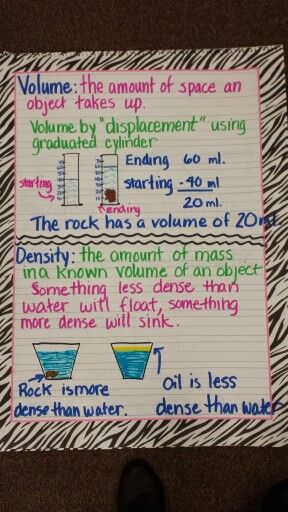 Volume: the amount of space an
object takes up.
Volume by "displacement" using
graduated cylinder
Ending 60 ml.
starting - 40 ml
20 ml.
starting
ending
The rock has a volume of 20ml.
Density: the amount of mass
in a known volume of an object
Something less dense than
water will float, something
more dense will sink..
Rock is more
dense than water.
Oil is less
dense than water